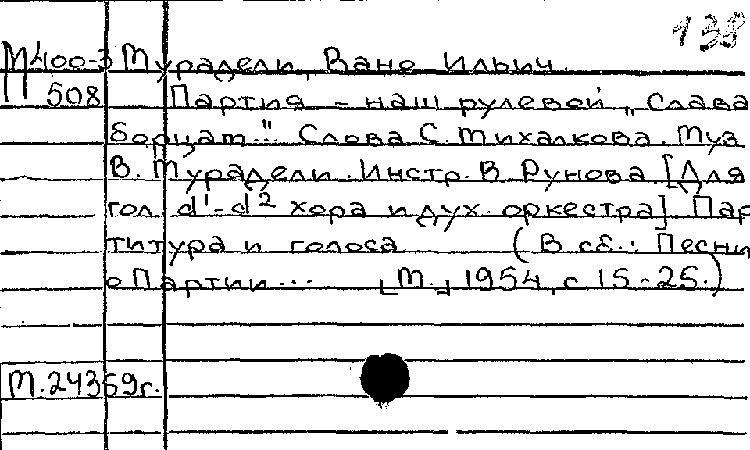 138
М400-3 Мурадели, Вано Ильич.
508 Партия – наш рулевой „Слава
борцам..." Слова С. Михалкова. Муз
В. Мурадели. Инстр. В Рунова. [Для
гол. d¹-d² хора и дух. оркестра]. Пар
титура и голоса (В сб.: Песни
о Партии... [М.] 1954, с 15-25.)
М.24369г.